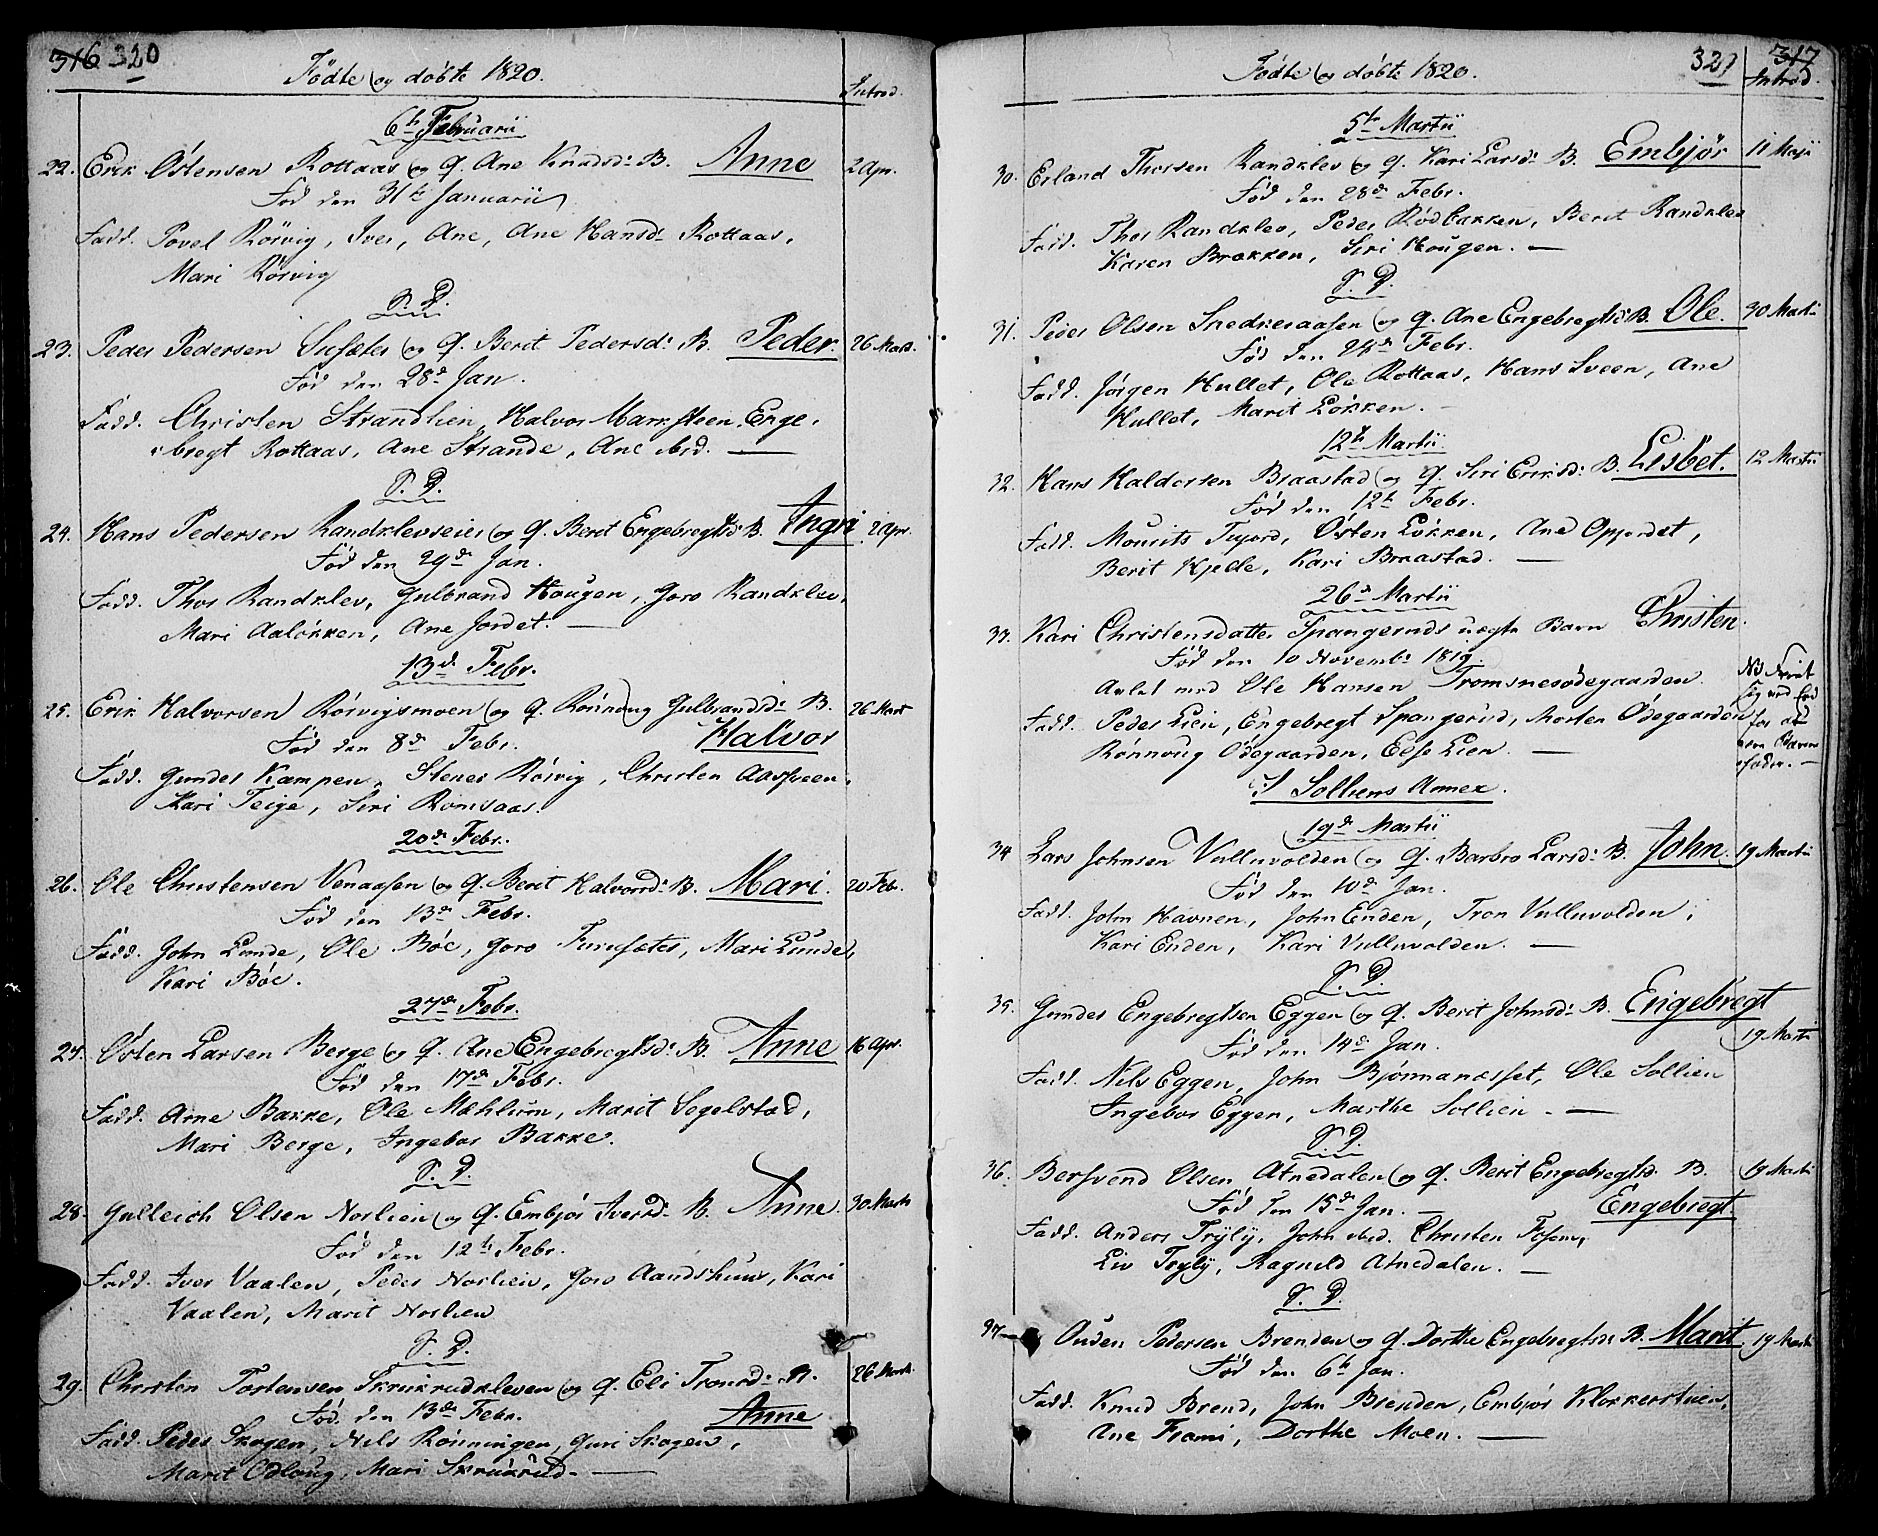 316 320
Födte og döbte 1820.
Introd.
6te Februarii
22. Erik Östensen Rottaas og Q. Ane Knudsd: B. Anne 2 Apr.
Föd den 31te Januarii
Fadd. Povel Rörvig, Iver, Ane, Ane Hansd: Rottaas,
Mari Rörvig
S. D.
23. Peder Pedersen og Q. Berit Pedersd: B. Peder. 26 Marts.
Föd den 28de Jan.
Fadd. Christen Strandlien, Halvor Marksteen, Enge-
bregt Rottaas, Ane Strande, Ane ibid.
S. D.
24. Hans Pedersen Randklevseier og Q. Berit Engebregtsd: B. Ingri 2 Apr.
Föd den 29de Jan.
Fadd. Thor Randklev, Gulbrand Hougen, Goro Randklev,
Mari Aalökken, Ane Jordet.
13de Febr.
25. Erik Halvorsen Rörvigsmoen og Q. Rönnoug Gulbrandsd: B. 26 Mart
Halvor
Föd den 8de Febr.
Fadd. Gunder Kampen, Stener Rörvig, Christen Aassveen,
Kari Teige, Siri Romsaas.
20de Febr.
26. Ole Christensen Venaasen og Q. Berit Halvorsd: B. Mari. 20 Febr.
Föd den 13de Febr.
Fadd. John Lunde, Ole Böe, Goro Furusæter, Mari Lunde,
Kari Böe.
27de Febr.
27. Östen Larsen Berge og Q. Ane Engebregtsd: B. Anne 16 Apr.
Föd den 17de Febr.
Fadd. Arne Bakke, Ole Mæhlum, Marit Segelstad,
Mari Berge, Ingebor Bakke.
S. D.
28. Gulleich Olsen Norlien og Q. Embjör Iversd: B. Anne 30 Marts
Föd den 12te Febr.
Fadd. Iver Vaalen, Peder Norlien, Goro Aandshuus, Kari
Vaalen, Marit Norlien
S. D.
29. Christen Torstensen Skrukrudkleven og Q. Eli Tronsd: B. 26 Marts
Anne
Föd den 13de Febr.
Fadd. Peder Skogen, Nils Rönningen, Guri Skogen,
Marit Odloug, Mari Skrukrud.
Födte og döbte 1820.
321 317
Introd.
5te Martii
30. Erland Thorsen Randklev og Q. Kari Larsd: B. Embjör 11 Maji
Föd den 28de Febr.
Fadd. Thor Randklev, Peder Rödbakken, Berit Randklev
Karen Brækken, Siri Hougen.
S. D.
31. Peder Olsen Snedkeraasen og Q. Ane Engebregtsd: B. Ole. 30 Martii
Föd den 28de Febr.
Fadd. Jörgen Hullet, Ole Rottaas, Hans Sveen, Ane
Hullet, Marit Lökken.
12te Martii
32. Hans Haldorsen Braastad og Q. Siri Eriksd: B. Lisbet. 12 Martii
Föd den 12te Febr.
Fadd. Mourits, Östen Lökken, Ane Opjordet,
Berit Hjelle, Kari Braastad.
26de Martii
33. Kari Christensdatter Spangeruds uægte Barn Christen.
Föd den 10 Novembr 1819.
Avlet med Ole Hansen Tromsnesödegaarden.
Fadd. Peder Lien, Engebregt Spangerud, Morten Ödegaarden
Rönnoug Ödegaarden, Else Lien.
NB
sig ved Eed
for at
være Barne
fader.
I Solliens Annex.
19de Martii
34 Lars Johnsen Vulluvolden og Q. Barbro Larsd: B. John. 19 Martii
Föd den 10de Jan.
Fadd. John Havnen, John Enden, Tron Vulluvolden,
Kari Enden, Kari Vulluvolden.
S. D.
35. Gunder Engebregtsen Eggen og Q. Berit Johnsd: B. Engebregt
19 Martii
Föd den 14de Jan.
Fadd. Nils Eggen, John Björnnanæsset, Ole Sollien
Ingebor Eggen, Marthe Sollien.
S. D.
36. Bersvend Olsen Atnedalen og Q. Berit Engebregtsd. B. 19 Martii
Engebregt.
Föd den 15de Jan.
Fadd. Anders Tryly, John ibid. Christen Fosum,
Liv Tryly, Ragnild Atnedalen.
S. D.
37 Ouden Pedersen Brenden og Q. Dorthe Engebregtsd: B. Marit 19 Martii
Föd den 6te Jan.
Fadd. Knud Brend, John Brenden, Embjör Klokkerstuen,
Ane Frami, Dorthe Moen.